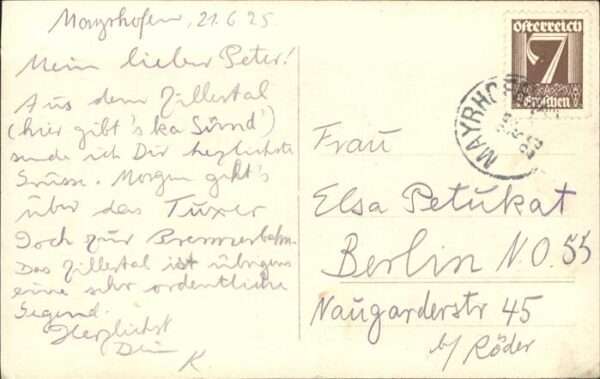 Mayrhofen, 21.6.25
Mein lieber Peter!
Aus dem Zillertal
(hier gibt's ka Sünd')
sende ich Dir herzlichste
Grüsse. Morgen geht's
über das Tuxer
Joch zur Brennerbahn.
Das Zillertal ist übrigens
eine sehr ordentliche
Gegend.
Herzlichst
Dein
K
Österreich
7
Groschen
MAYRHOFEN
Frau
Elsa Petukat
Berlin N.O.55
Naugarderstr 45
b/ Röder